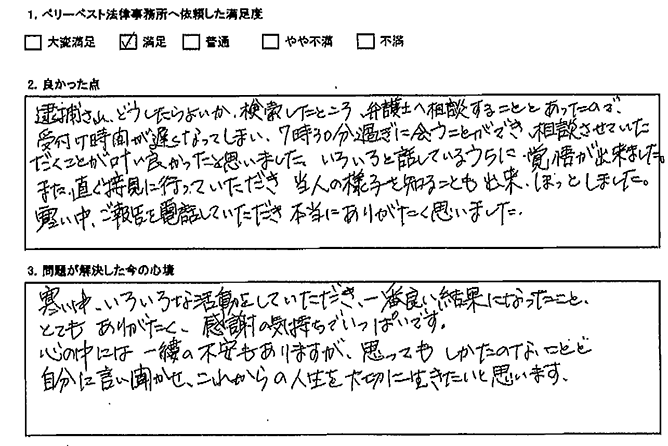 1. ベリーベスト法律事務所へ依頼した満足度
大変満足 満足 普通 やや不満 不満
2. 良かった点
逮捕され、どうしたらよいか、検索したところ、弁護士へ相談することとあったので、
受付け時間が遅くなってしまい、7時30分過ぎに会うことができ、相談させていた
だくことが叶い良かったと思いました。いろいろと話しているうちに、覚悟が出来ました。
また、直ぐ接見に行っていただき 当人の様子を知ることも出来、ほっとしました。
寒い中、ご報告を電話していただき 本当にありがたく思いました。
3. 問題が解決した今の心境
寒い中、いろいろな活動をしていただき、一番良い結果になったこと、
とても ありがたく、感謝の気持ちでいっぱいです。
心の中には 一縷の不安もありますが、思っても しかたのないことと
自分に言い聞かせ、これからの人生を大切に生きたいと思います。